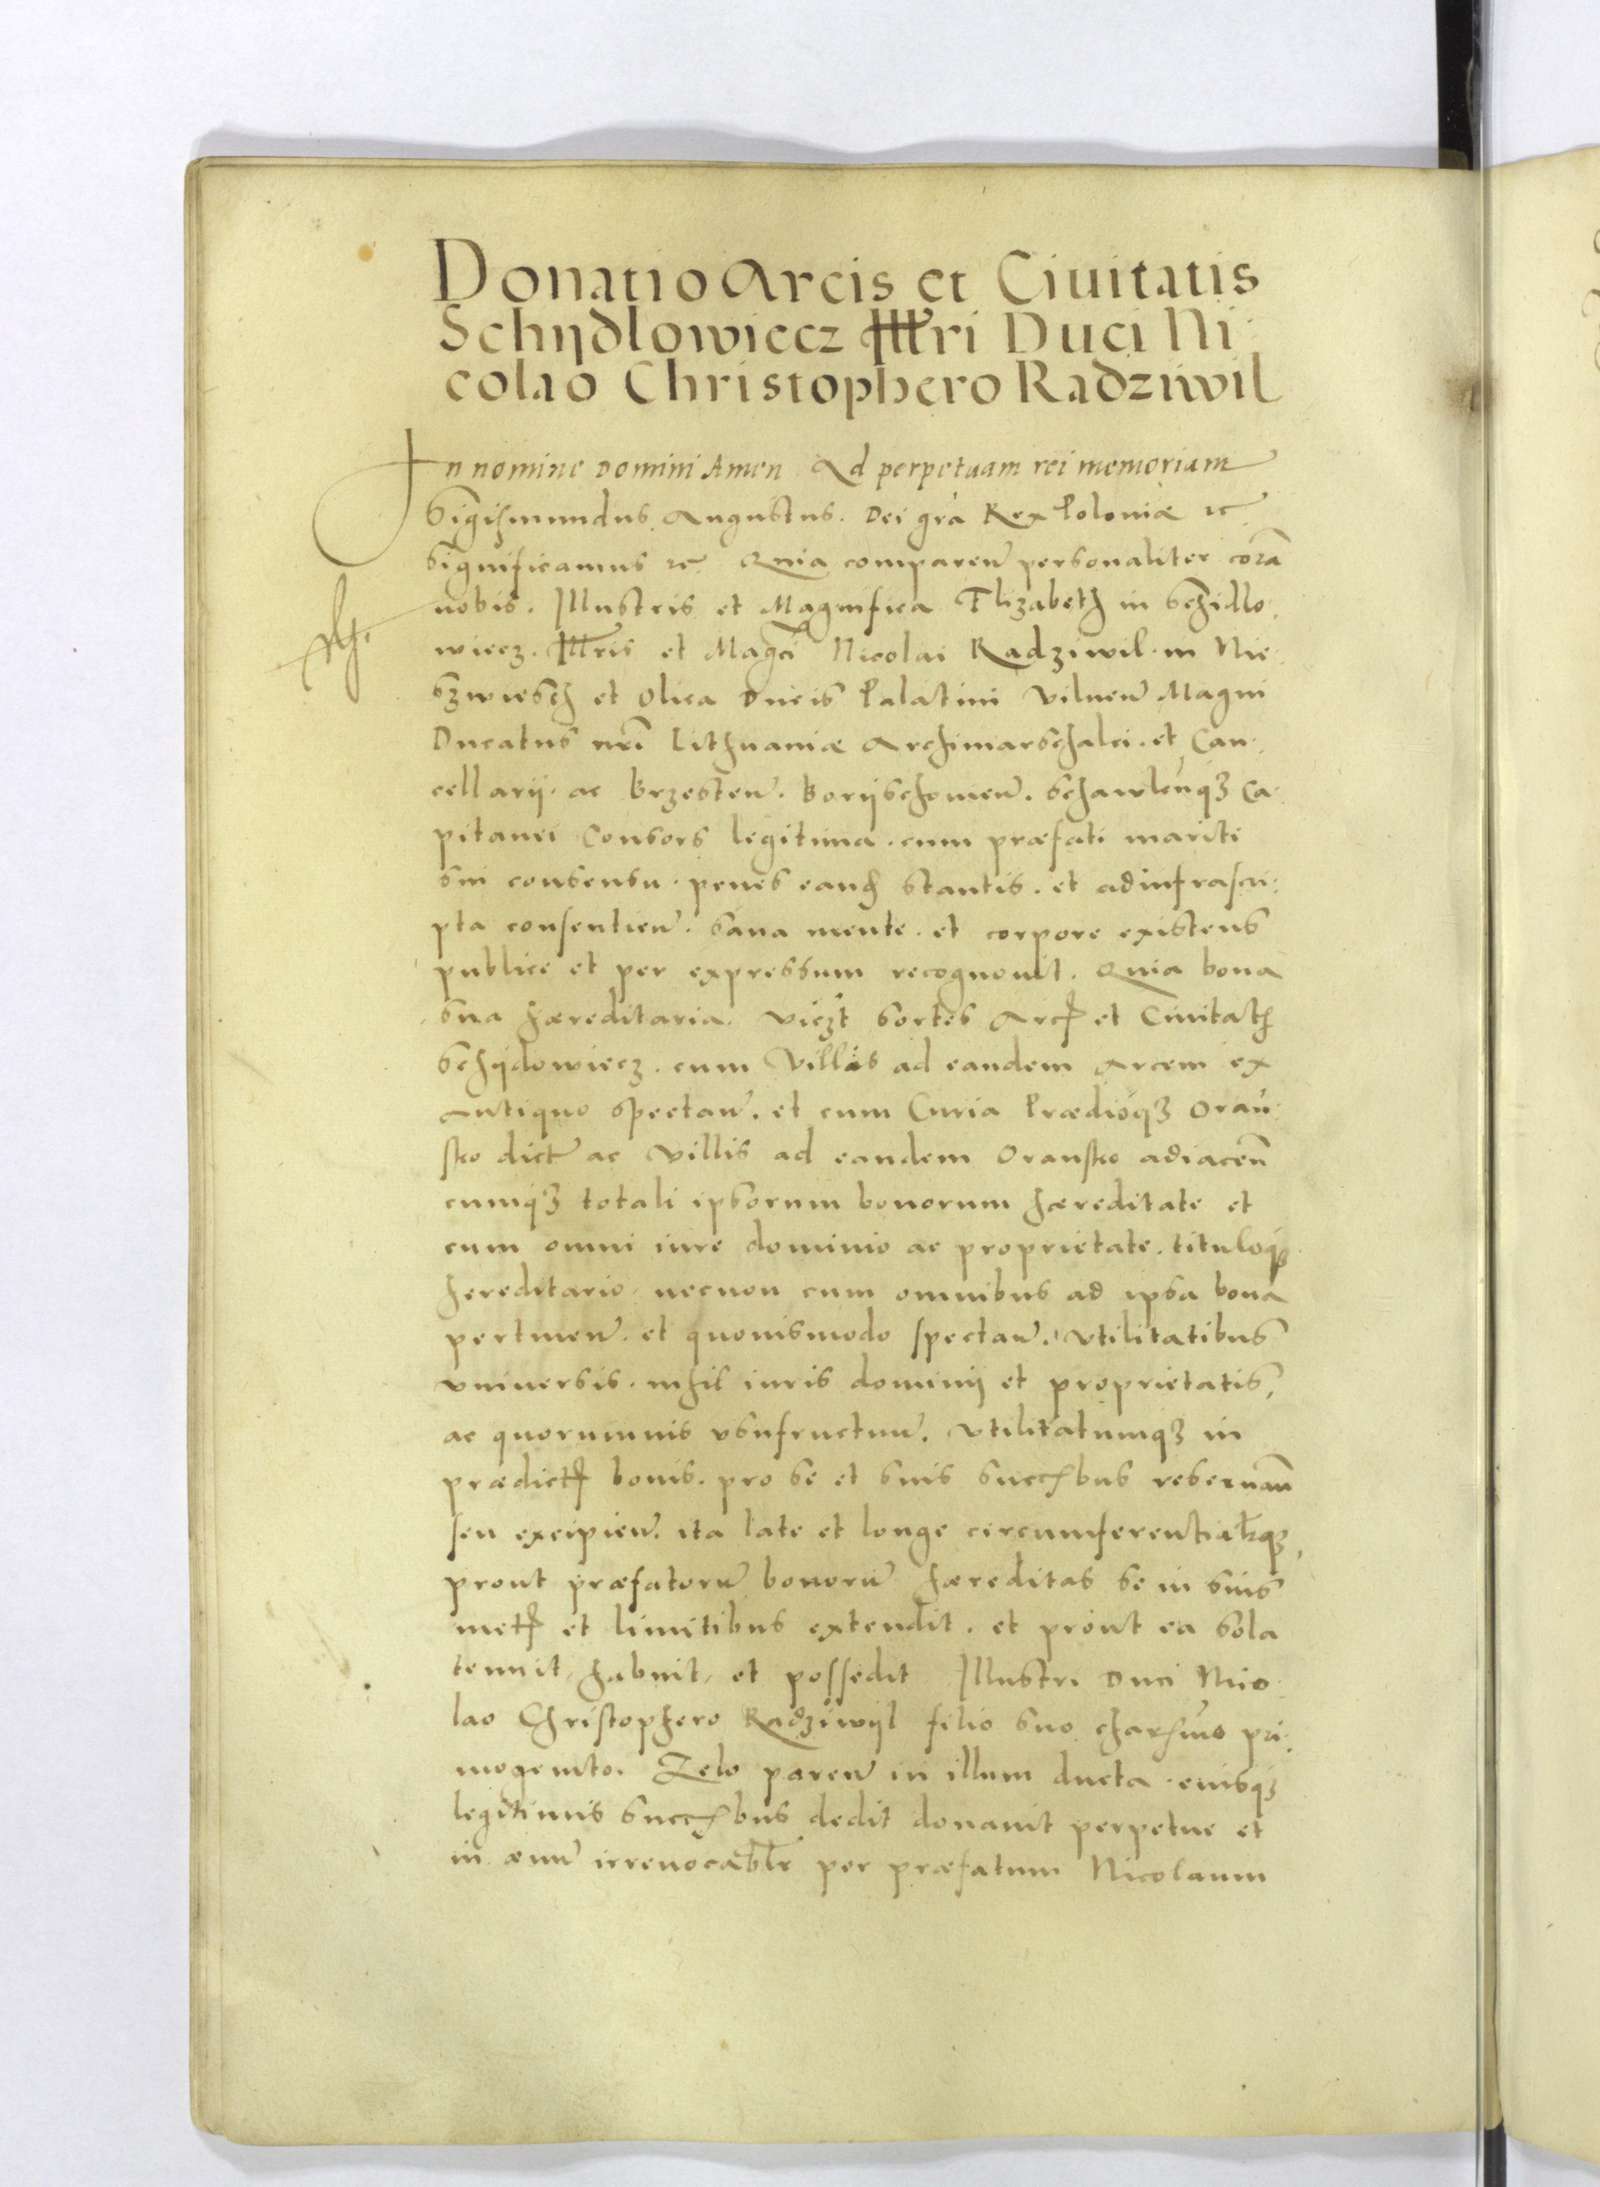 Donatio Arcis et Ciuitatis
Schÿdlowiecz Illri Duci Ni
colao Christophero Radziwil
In nomine Domini Amen Ad perpetuam rei memoriam
Sigismundus Augustus. Dei gra Rex Poloniæ etc
significamus etc Quia comparen personaliter corā
nobis. Illustris et Magnifica Elizabeth in Schidlo
wiecz. Illris et Magci Nicolai Radziwil in Nie
szwiesch et Olica Ducis Palatini Vilnen Magni
Ducatus nri Lithuaniæ Archimarschalci. et Can
cellarij. ac Brzesten. Borijschomen. Schawlenqȝ Ca
pitanei Consors legitima. cum præfati mariti
sui consensu. penes eandē stantis. et ad infrascri
pta consentien. sana mente. et corpore existens
publice et per expressum recognouit. Quia bona
sua hæreditaria. viczt sortes Arcꝭ et Ciuitatꝭ
Schijdowiecz. cum Villis ad eandem Arcem ex
antiquo spectan. et cum Curia Prædioqȝ Oran
sko dict ac Villis ad eandem Oransko adiacen
cumqȝ totali ipsorum bonorum hæreditate et
cum omni iure dominio ac proprietate. tituloqȝ
hereditario. necnon cum omnibus ad ipsa bona
pertinen. et quouismodo spectan. vtilitatibus
vniuersis. nihil iuris dominij et proprietatis,
ac quorumuis vsufructuu. vtilitatumqȝ in
prædictꝭ bonis. pro se et suis succꝭbus reseruan
seu excipien. ita late et longe circumferentialrqȝ,
prout præfatoru bonoru hæreditas se in suis
metꝭ et limitibus extendit. et prout ea sola
tenuit, habuit, et possedit Illustri Duci Nico
lao Christophero Radziwijl filio suo charsimo pri
mogenito. Zelo paren in illum ducta. eiusqȝ
legitimis succꝭbus dedit donauit perpetue et
in æuu irreuocablr per præfatum Nicolaum